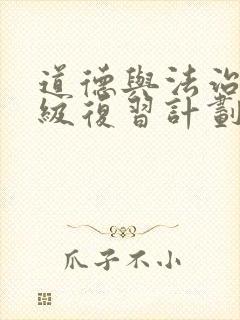 道德與法治
級復習計劃
爪子不小